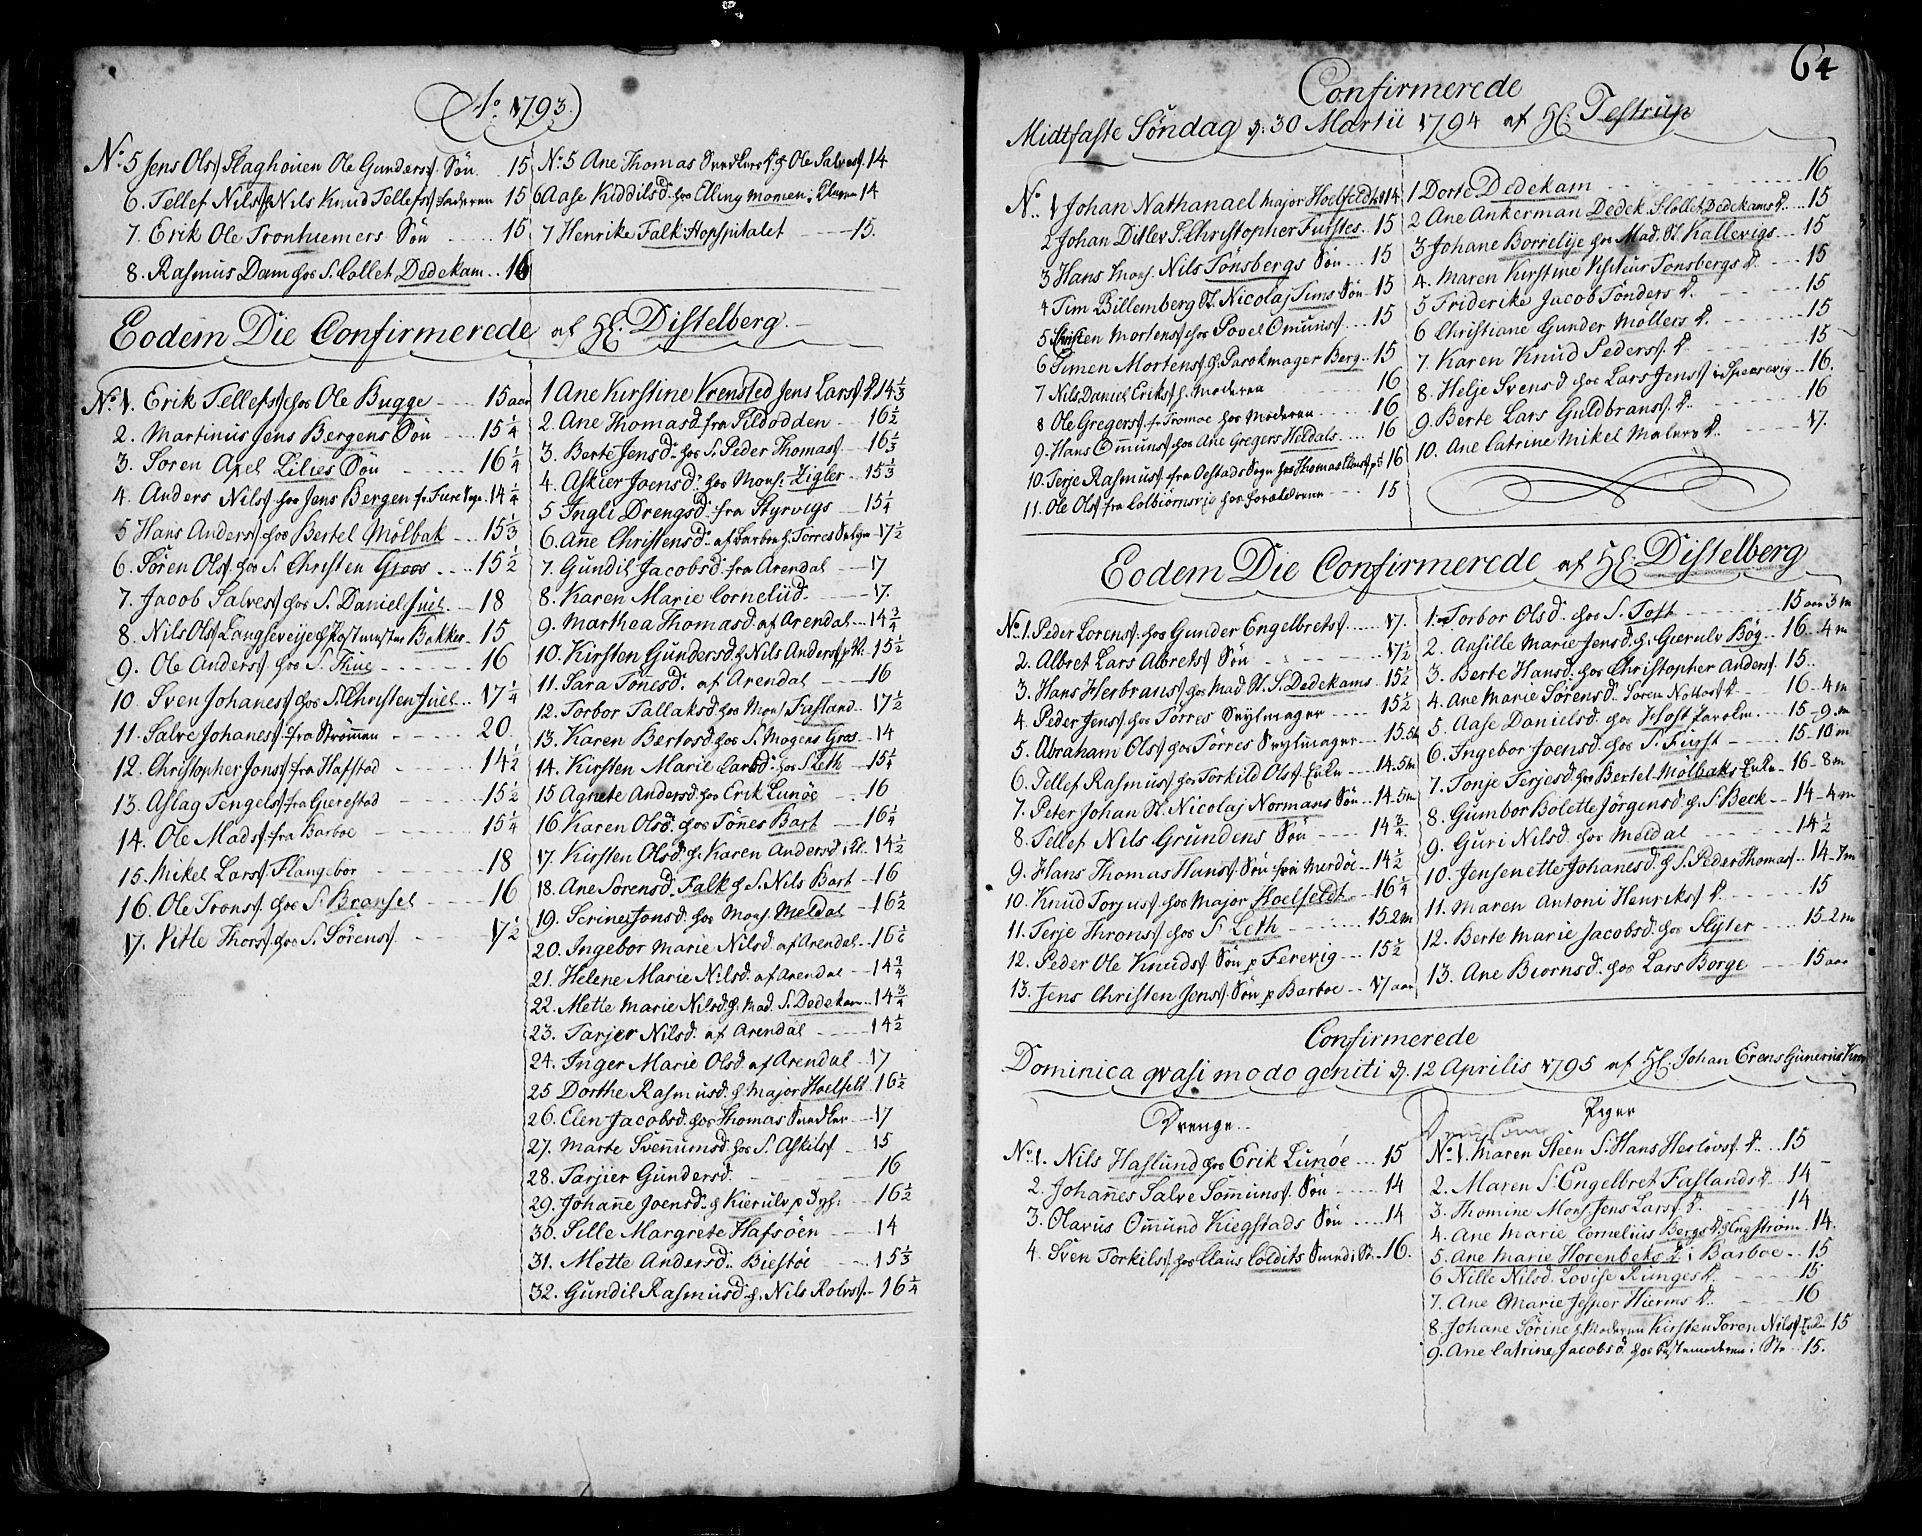 Ao. 1793.
No. 5 Jens Ols. Slaghouen Ole Gunders. Søn. 15
6. Tellef Nils. Nils Knud Tellefs. Faderen 15
7. Erik Ole Tronhiemers Søn 15
8. Rasmus Dam hos S. Collet Dedekam 16
No. 5 Ane Thomas Snedkers D. h. Ole Salves. 14
6 Aase Kiddilsd. hos Elling Momen 14
7 Henrike Falk Hospitalet 15.
Eodem Die Confirmerede af Hr. Distelberg.
No. 1. Erik Tellefs. hos Ole Bugge 15 aar
2. Martinus Jens Bergens Søn 15 1/4
3. Soren Axel Lilies Søn 16 1/4
4. Anders Nils. hos Jens Bergen fr. Sogn 14 1/4
5 Hans Anders. hos Bertel Mølbak 15 1/3
6. Søren Ols. hos S. Christen Groos 15 1/2
7. Jacob Salves. hos S. Daniel Juel 18
8. Nils Ols. Langseveije h. Postmester Bakker 15
9. Ole Anders. hos S. Thue 16
10. Sven Johanes. hos S. Christen Juel 17 1/4
11. Salve Johanes. fra Strømen 20
12. Christopher Jons. fra Hafstad 14 1/2
13. Aslag Tengels. fra Gierestad 15 1/2
14. Ole Mads. fra Barboe 15 1/4
15. Mikel Lars. Flangebor 18
16. Ole Trons. hos S. Bransel 16
17. Vitte Thors. hos S. Sørens. 17 1/2
1 Ane Kirstine Vrensted Jens Lars. D. 14 1/3
2. Ane Thomasd. fra Tildodden 16 1/2
3. Berte Jensd. hos S. Peder Thomas. 16 1/3
4. Askier Joensd. hos Mons. Zigler 15 1/3
5 Ingli Drengsd. fra Styrvigs 15 1/4
6. Ane Christensd. af Barboe h. Torres 17 1/2
7. Gundil Jacobsd. fra Arendal 17
8. Karen Marie Cornelüd. 17.
9. Marthea Thomasd. af Arendal 14 3/4
10. Kirsten Gundersd. h. Nils Anders. 15 1/2
11. Sara Tönesd. af Arendal 16
12. Torbor Tallaksd. hos Mons. Fasland 17 1/2
13. Karen Bertosd. hos S. Mogens Gros 14
14. Kirsten Marie Larsd. hos S. Leth 15 1/4
15 Agnete Andersd. hos Erik Lunøe 16
16. Karen Olsd. hos Tønes Bart 16 1/4
17. Kirsten Olsd. h. Karen Andersd. 14 1/2
18. Ane Sorensd. Falk h. S. Nils Bart 16
19. Serine Jonsd. hos Mons. Meldal 16 1/2
20. Ingebor Marie Nilsd. af Arendal 16 1/6
21. Helene Marie Nilsd. af Arendal 14 3/4
22. Mette Marie Nilsd. h. Mad. S. Dedekam 14 3/4
23. Tarjer Nilsd. af Arendal 14 1/2
24. Inger Marie Olsd. af Arendal 17
25 Dorthe Rasmusd. h. Major Hoelfelt 16 1/2
26. Elen Jacobsd. hos Thomas Snedker 17
27. Marte Svenumsd. hos S. Askils. 15
28. Tarjier Gundersd. 16
29. Johane Joensd. h. Kierulv 16 1/2
30. Sille Margrete Hafsöen 14
31. Mette Andersd. Biestøe 15 1/3
32. Gundil Rasmusd. h. Nils Rolvs. 16 1/4
64
Confirmerede
Midtfaste Söndag d. 30 Martii 1794 af Hr. Testrup
No. 1 Johan Nathanael Major Hoelfeldts 14
2 Johan Ditlev S. Christopher Furstes 15
3 Hans Mons. Nils Tønsbergs Søn 15
4 Tim Billemberg St. Nicolaj Tims Søn 15
5 Christen Mortens. hos Povel Omuns. 15
6 Simen Mortens. h. Parokmager Berg 15
7 Nils Daniel Eriks. h. Moderen 16
8 Ole Gregers. fr. Tromøe hos Moderen 16
9. Hans Omuns. hos Ane Gregers Heldals 16
10. Terje Rasmus. fra Oestads Sogn hos Thomas 16
11. Ole Ols. fra Colbiørnsvig hos Forældrene 15
1 Dorte Dedekam 16
2 Ane Ankerman Dedek. S. Collet Dedekams D. 15
3 Johane Borrelije hos Mad. St. Kallevigs 15
4. Maren Kirstine Visiteur Tonsbergs D. 15
5 Friderike Jacob Tönders D. 15
6 Christiane Gunder Møllers D. 15
7. Karen Knud Peders. D. 15
8. Helje Svensd. hos Lars Jens. i Spærevig 16.
9. Berte Lars Guldbrans. D. 16
10. Ane Catrine Mikel Malers D. 17.
Eodem Die Confirmerede af Hr. Distelberg
No. 1. Peder Lorens. hos Gunder Engelbrets. 17.
2. Albret Lars Albrets. Søn 17 1/2
3. Hans Herbrans. hos Mad. St. S. Dedekams 15 1/2
4. Peder Jens. hos Torres Seylmager 15 1/2
5. Abraham Ols. hos Torres Seylmager 15. 5 m
6. Tellef Rasmus. hos Torkild Ols. Enke 14. 5 m
7. Peter Johan St. Nicolaj Normans Søn 14. 5 m
8. Tellef Nils Grundens Søn 14 3/4
9. Hans Thomas Hans. Søn fra Merdøe 14 1/2
10. Knud Torjus. hos Major Hoelfeldt 16 1/4
11. Terje Throns. hos S. Leth 15. 2 m
12. Peder Ole Knuds. Søn p Ferevig 15 1/2
13. Jens Christen Jens. Søn p Barboe 17 aar
1. Torbor Olsd. hos S. Toft 15 aar 3 m
2. Assille Marie Jensd. h. Gierulv Bøg 16. 4 m
3. Berte Hansd. hos Christopher Anders. 15.
4. Ane Marie Sørensd. Soren Nottos. D. 16 - 4 m
5. Aase Danielsd. hos Host 15 - 9 m
6. Ingebor Joensd. hos S. Furst 15 - 10 m
7. Tonje Terjesd. hos Bertel Mølbaks Enke 16 - 8 m
8. Gumbor Bolette Jörgensd. h. S. Beck 14 - 4 m
9. Guri Nilsd. hos Meldal 14 1/2
10. Jensenette Johanesd. h. S. Peder Thomas. 14 - 7 m
11. Maren Antoni Henriks. D. 15
12. Berte Marie Jacobsd. hos Slyter 15 - 2 m
13. Ane Biornsd. hos Lars Borge 15 aar
Confirmerede
Dominica qvasi modo geniti d. 12 Aprilis 1795 af Hr. Johan Erens Gunerius
Drenge
No. 1. Nils Haslund hos Erik Lunøe 15
2. Johanes Salve Somuns. Søn 14
3. Olavus Omund Kiegstads Søn 14
4. Sven Torkils. hos Claus Coldits Smed 16.
Piger
No. 1. Maren Steen S. Hans Herlovs. D. 15
2. Maren S. Engelbret Faslands D. 14
3. Thomine Mons. Jens Lars. D. 14
4. Ane Marie Cornelius Bergs D. h. Engström 14.
5. Ane Marie Horenbeks D. i Barboe 15
6 Nille Nilsd. Lovise Runges D. 15
7. Ane Marie Jesper Hierms D. 16
8. Johane Sørine h. Moderen Kirsten Soren Nils. Enke 15
9. Ane Catrine Jacobsd. hos Stedmoderen 15.